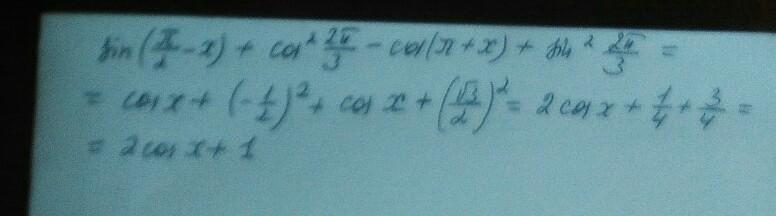 sin(π/2 − x) + cos² 2π/3 − cos(π + x) + sin² 2π/3 =
= cos x + (−1/2)² + cos x + (√3/2)² = 2 cos x + 1/4 + 3/4 =
= 2 cos x + 1